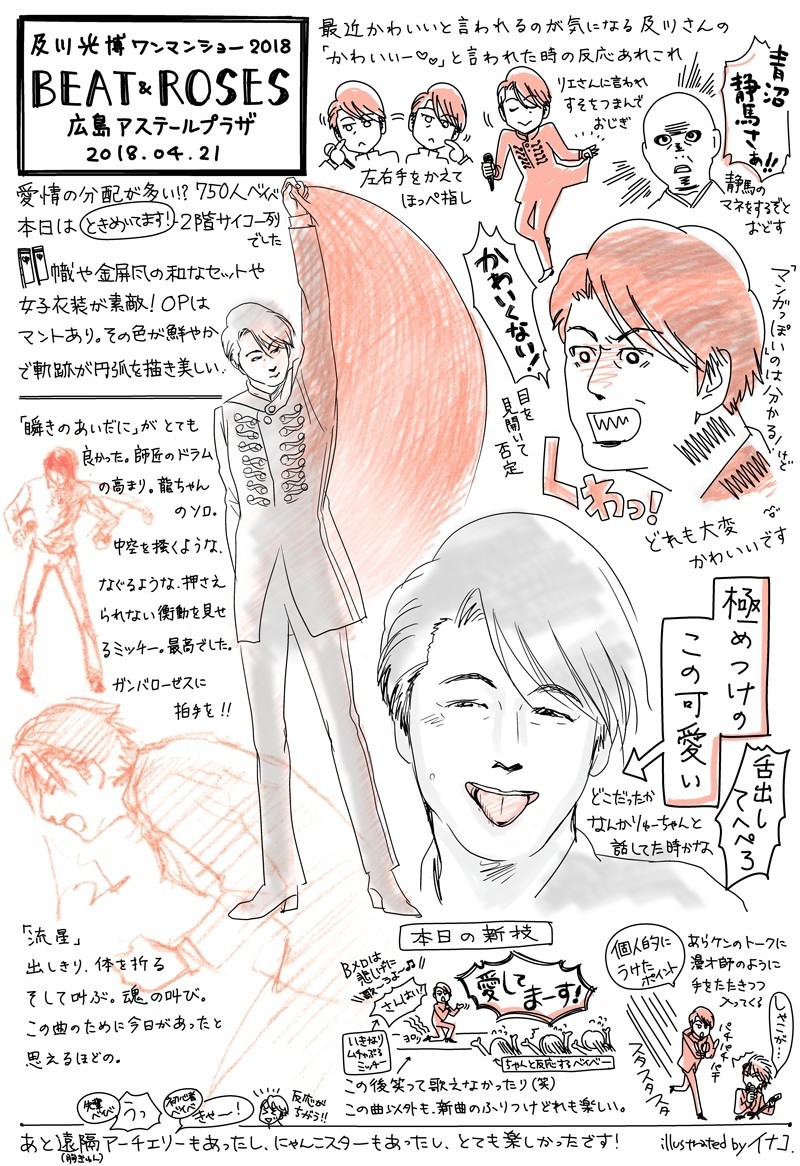 及川光博ワンマンショー2018
BEAT&ROSES
広島アステールプラザ
2018.04.21
最近かわいいと言われるのが気になる及川さんの
「かわいいー♡♡」と言われた時の反応あれこれ
左右手をかえて
ほっぺ指し
リエさんに言われ
すそをつまんで
おじぎ
青沼
静馬さぁ!!
静馬の
マネをするぞと
おどす
愛情の分配が多い!?750人ベイベ
本日はときめいてます!-2階サイコー列
でした
幟や金屏風の和なセットや
女子衣装が素敵!OPは
マントあり。その色が鮮やか
で軌跡が円弧を描き美しい。
かわいくない!
目を
見開いて
否定
「マンガっぽいのは分かる」けど
くわっ!
どれも大変
かわいいです
「瞬きのあいだに」がとても
良かった。師匠のドラム
の高まり。龍ちゃん
のソロ。
中空を掻くような、
なぐるような、押さえ
られない衝動を見せ
るミッチー。最高でした。
ガンバローゼスに
拍手を!!
極めつけの
この可愛い
舌出し
てへぺろ
どこだったか
なんかりゅーちゃんと
話してた時かな
「流星」
出しきり、体を折る
そして叫ぶ。魂の叫び。
この曲のために今日があったと
思えるほどの。
本日の新技
Bメロは
悲しげに
歌うよ~♫
さんはい!
いきなり
ムチャぶる
ミッチー
愛して
まーす!
ちゃんと反応するベイベー
この後笑って歌えなかったり(笑)
この曲以外も、新曲のふりつけどれも楽しい。
個人的に
うけた
ポイント
あらケンのトークに
漫才師のように
手をたたきつつ
入ってくる
パチパチパチ
スタスタスタ
しゃこが…
うっ
初心者
ベイベ
きゃー!
反応が
ちがう!!
あと遠隔アーチェリーもあったし、にゃんこスターもあったし、とても楽しかったです!
illustrated by イナコ.